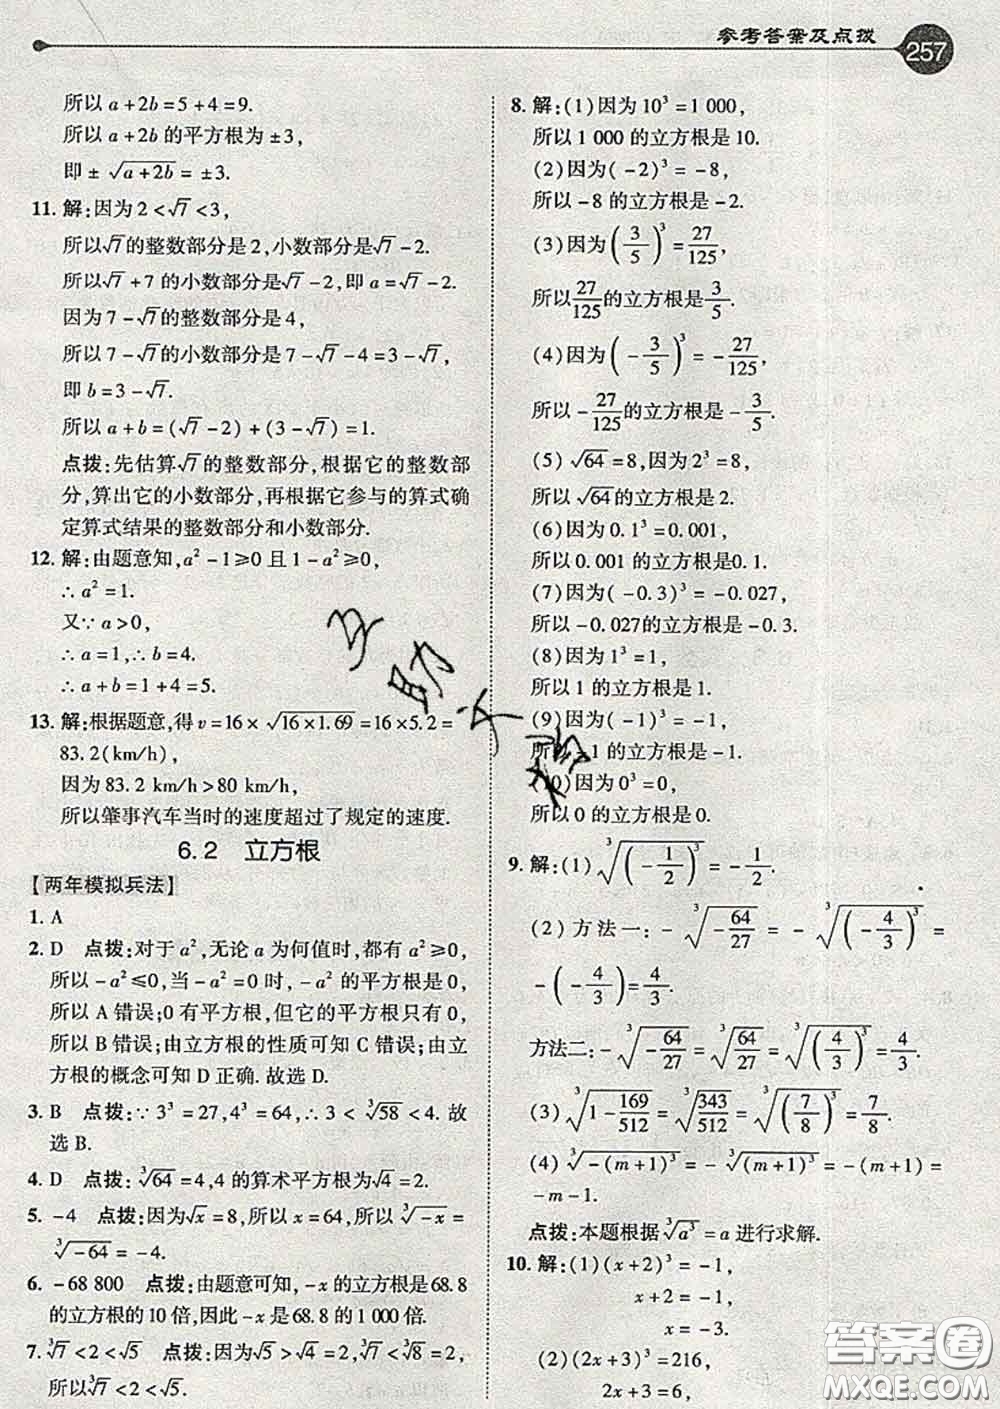 参考答案及点拨 257
所以 a+2b=5+4=9.
所以 a+2b 的平方根为±3,
即± √(a+2b) = ±3.
11. 解:因为 2<√7<3,
所以√7的整数部分是 2,小数部分是√7-2.
所以√7+7 的小数部分是√7-2,即 a=√7-2.
因为 7-√7的整数部分是 4,
所以 7-√7的小数部分是 7-√7-4=3-√7,
即 b=3-√7.
所以 a+b=(√7-2)+(3-√7)=1.
点拨:先估算√7的整数部分,根据它的整数部
分,算出它的小数部分,再根据它参与的算式确
定算式结果的整数部分和小数部分.
12. 解:由题意知,a²-1≥0 且 1-a²≥0,
∴a²=1.
又∵a>0,
∴a=1,∴b=4.
∴a+b=1+4=5.
13. 解:根据题意,得 v=16×√(16×1.69)=16×5.2=
83.2(km/h),
因为 83.2 km/h>80 km/h,
所以肇事汽车当时的速度超过了规定的速度.
6.2 立方根
【两年模拟兵法】
1. A
2. D 点拨:对于 a²,无论 a 为何值时,都有 a²≥0,
所以-a²≤0,当-a²=0 时,-a²的平方根是 0,
所以 A 错误;0 有平方根,但它的平方根只有0,
所以 B 错误;由立方根的性质可知 C 错误;由立
方根的概念可知 D 正确. 故选 D.
3. B 点拨:∵3³=27,4³=64,∴3<∛58<4. 故
选 B.
4. D 点拨:∛64=4,4 的算术平方根为√4=2.
5. -4 点拨:因为√x=8,所以 x=64,所以∛(-x)=
∛(-64)=-4.
6. -68 800 点拨:由题意可知,-x 的立方根是68.8
的立方根的 10 倍,因此-x 是 68.8 的 1 000 倍.
7. ∛7<2<√5 点拨:因为√5>√4=2,∛7<∛8=2,
所以∛7<2<√5.
8. 解:(1)因为 10³=1 000,
所以 1 000 的立方根是 10.
(2)因为(-2)³=-8,
所以-8 的立方根是-2.
(3)因为(3/5)³=27/125,
所以27/125的立方根是3/5.
(4)因为(-3/5)³=-27/125,
所以-27/125的立方根是-3/5.
(5)√64=8,因为 2³=8,
所以√64的立方根是 2.
(6)因为 0.1³=0.001,
所以 0.001 的立方根是0.1.
(7)因为(-0.3)³=-0.027,
所以-0.027的立方根是-0.3.
(8)因为 1³=1,
所以 1 的立方根是 1.
(9)因为(-1)³=-1,
所以-1 的立方根是-1.
0)因为 0³=0,
所以 0 的立方根是 0.
9. 解:(1)∛((-1/2)³)=-1/2.
(2)方法一:-∛(-64/27)=-∛((-4/3)³)=
-(-4/3)=4/3.
方法二:-∛(-64/27)=∛(64/27)=∛((4/3)³)=4/3.
(3)∛(1-169/512)=∛(343/512)=∛((7/8)³)=7/8.
(4)∛(-(m+1)³)=-∛((m+1)³)=-(m+1)=
-m-1.
点拨:本题根据∛(a³)=a 进行求解.
10. 解:(1)(x+2)³=-1,
x+2=-1,
x=-3.
(2)(2x+3)³=216,
2x+3=6,
互助文档
答案圈
MXQE.COM